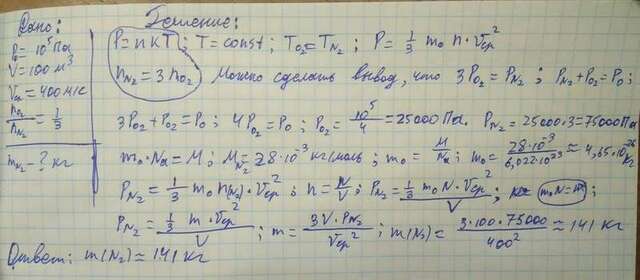 Дано:
P₀ = 10⁵ Па
V = 100 м³
Vср = 400 м/с
n₀₂/nN₂ = 1/3
mN₂ - ? кг
Решение:
P = nkT; T = const; TO₂ = TN₂; P = 1/3 m₀ n · Vср²
nN₂ = 3nO₂ Можно сделать вывод, что 3PO₂ = PN₂; PN₂ + PO₂ = P₀;
3PO₂ + PO₂ = P₀; 4PO₂ = P₀; PO₂ = 10⁵/4 = 25000 Па. PN₂ = 25000 · 3 = 75000 Па
m₀ · Na = M; MN₂ = 28 · 10⁻³ кг/моль; m₀ = M/Na; m₀ = 28 · 10⁻³/6,022 · 10²³ ≈ 4,65 · 10⁻²⁶ кг
PN₂ = 1/3 m₀ n(N₂) · Vср²; n = N/V; PN₂ = 1/3 m₀ N · Vср²/V; m₀N = m;
PN₂ = 1/3 m · Vср²/V; m = 3V · PN₂/Vср²; m(N₂) = 3 · 100 · 75000/400² ≈ 141 кг
Ответ: m(N₂) ≈ 141 кг